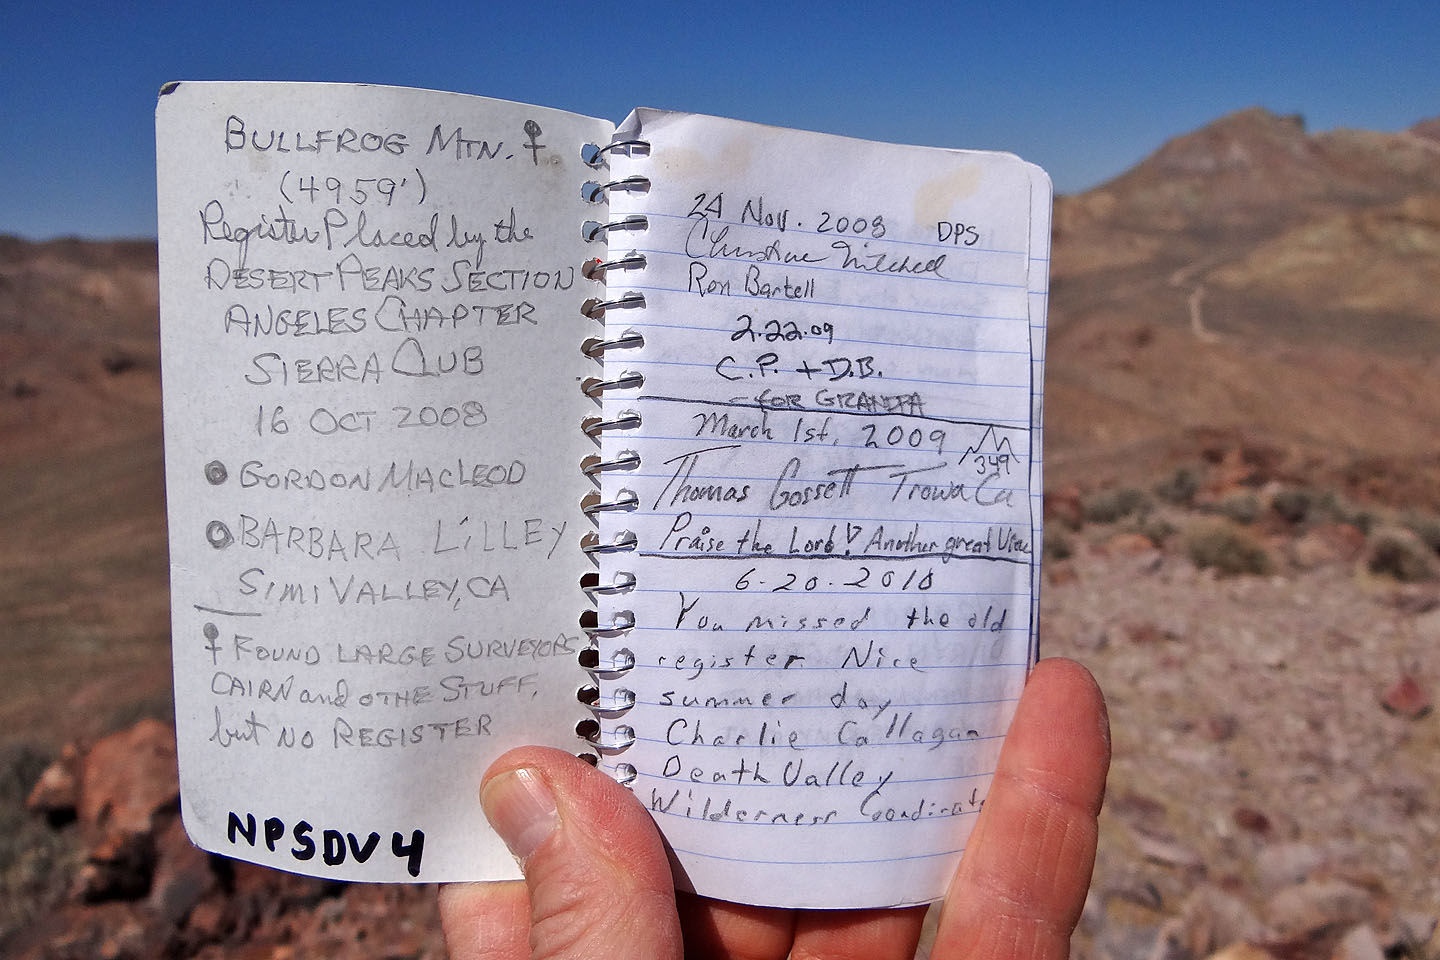 BULLFROG MTN.
(4959')
Register Placed by the
DESERT PEAKS SECTION
ANGELES CHAPTER
SIERRA CLUB
16 OCT 2008
GORDON MACLEOD
BARBARA LILLEY
SIMI VALLEY, CA
FOUND LARGE SURVEYORS
CAIRN and OTHE STUFF,
but NO REGISTER
NPSDV4
24 Nov. 2008 DPS
Christine Mitchell
Ron Bartell
2.22.09
C.P. + D.B.
- FOR GRANDPA
March 1st, 2009
349
Thomas Gossett Trowa Ca
Praise the Lord! Another great View
6-20-2010
You missed the old
register Nice
summer day
Charlie Callagan
Death Valley
Wilderness